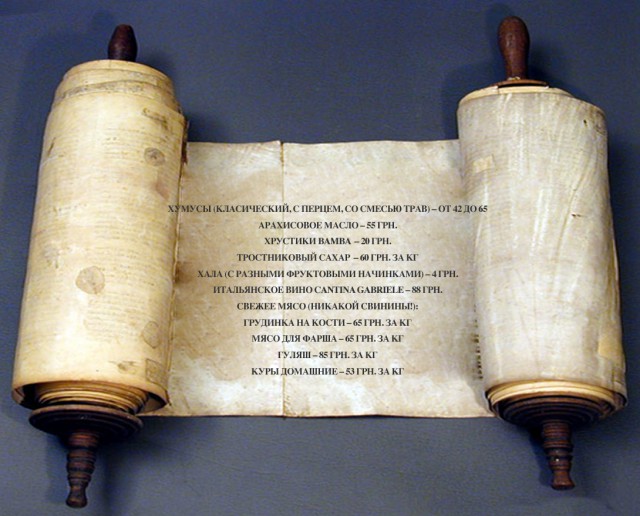 ХУМУСЫ (КЛАСИЧЕСКИЙ, С ПЕРЦЕМ, СО СМЕСЬЮ ТРАВ) – ОТ 42 ДО 65
АРАХИСОВОЕ МАСЛО – 55 ГРН.
ХРУСТИКИ BAMBA – 20 ГРН.
ТРОСТНИКОВЫЙ САХАР – 60 ГРН. ЗА КГ
ХАЛА (С РАЗНЫМИ ФРУКТОВЫМИ НАЧИНКАМИ) – 4 ГРН.
ИТАЛЬЯНСКОЕ ВИНО CANTINA GABRIELE – 88 ГРН.
СВЕЖЕЕ МЯСО (НИКАКОЙ СВИНИНЫ!):
ГРУДИНКА НА КОСТИ – 65 ГРН. ЗА КГ
МЯСО ДЛЯ ФАРША – 65 ГРН. ЗА КГ
ГУЛЯШ – 85 ГРН. ЗА КГ
КУРЫ ДОМАШНИЕ – 53 ГРН. ЗА КГ